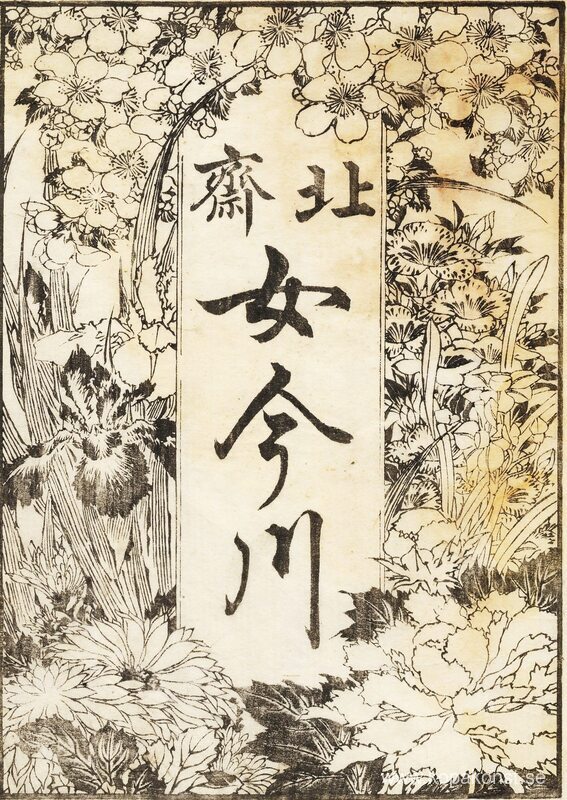 北齋
女今川
www.kopakonst.se